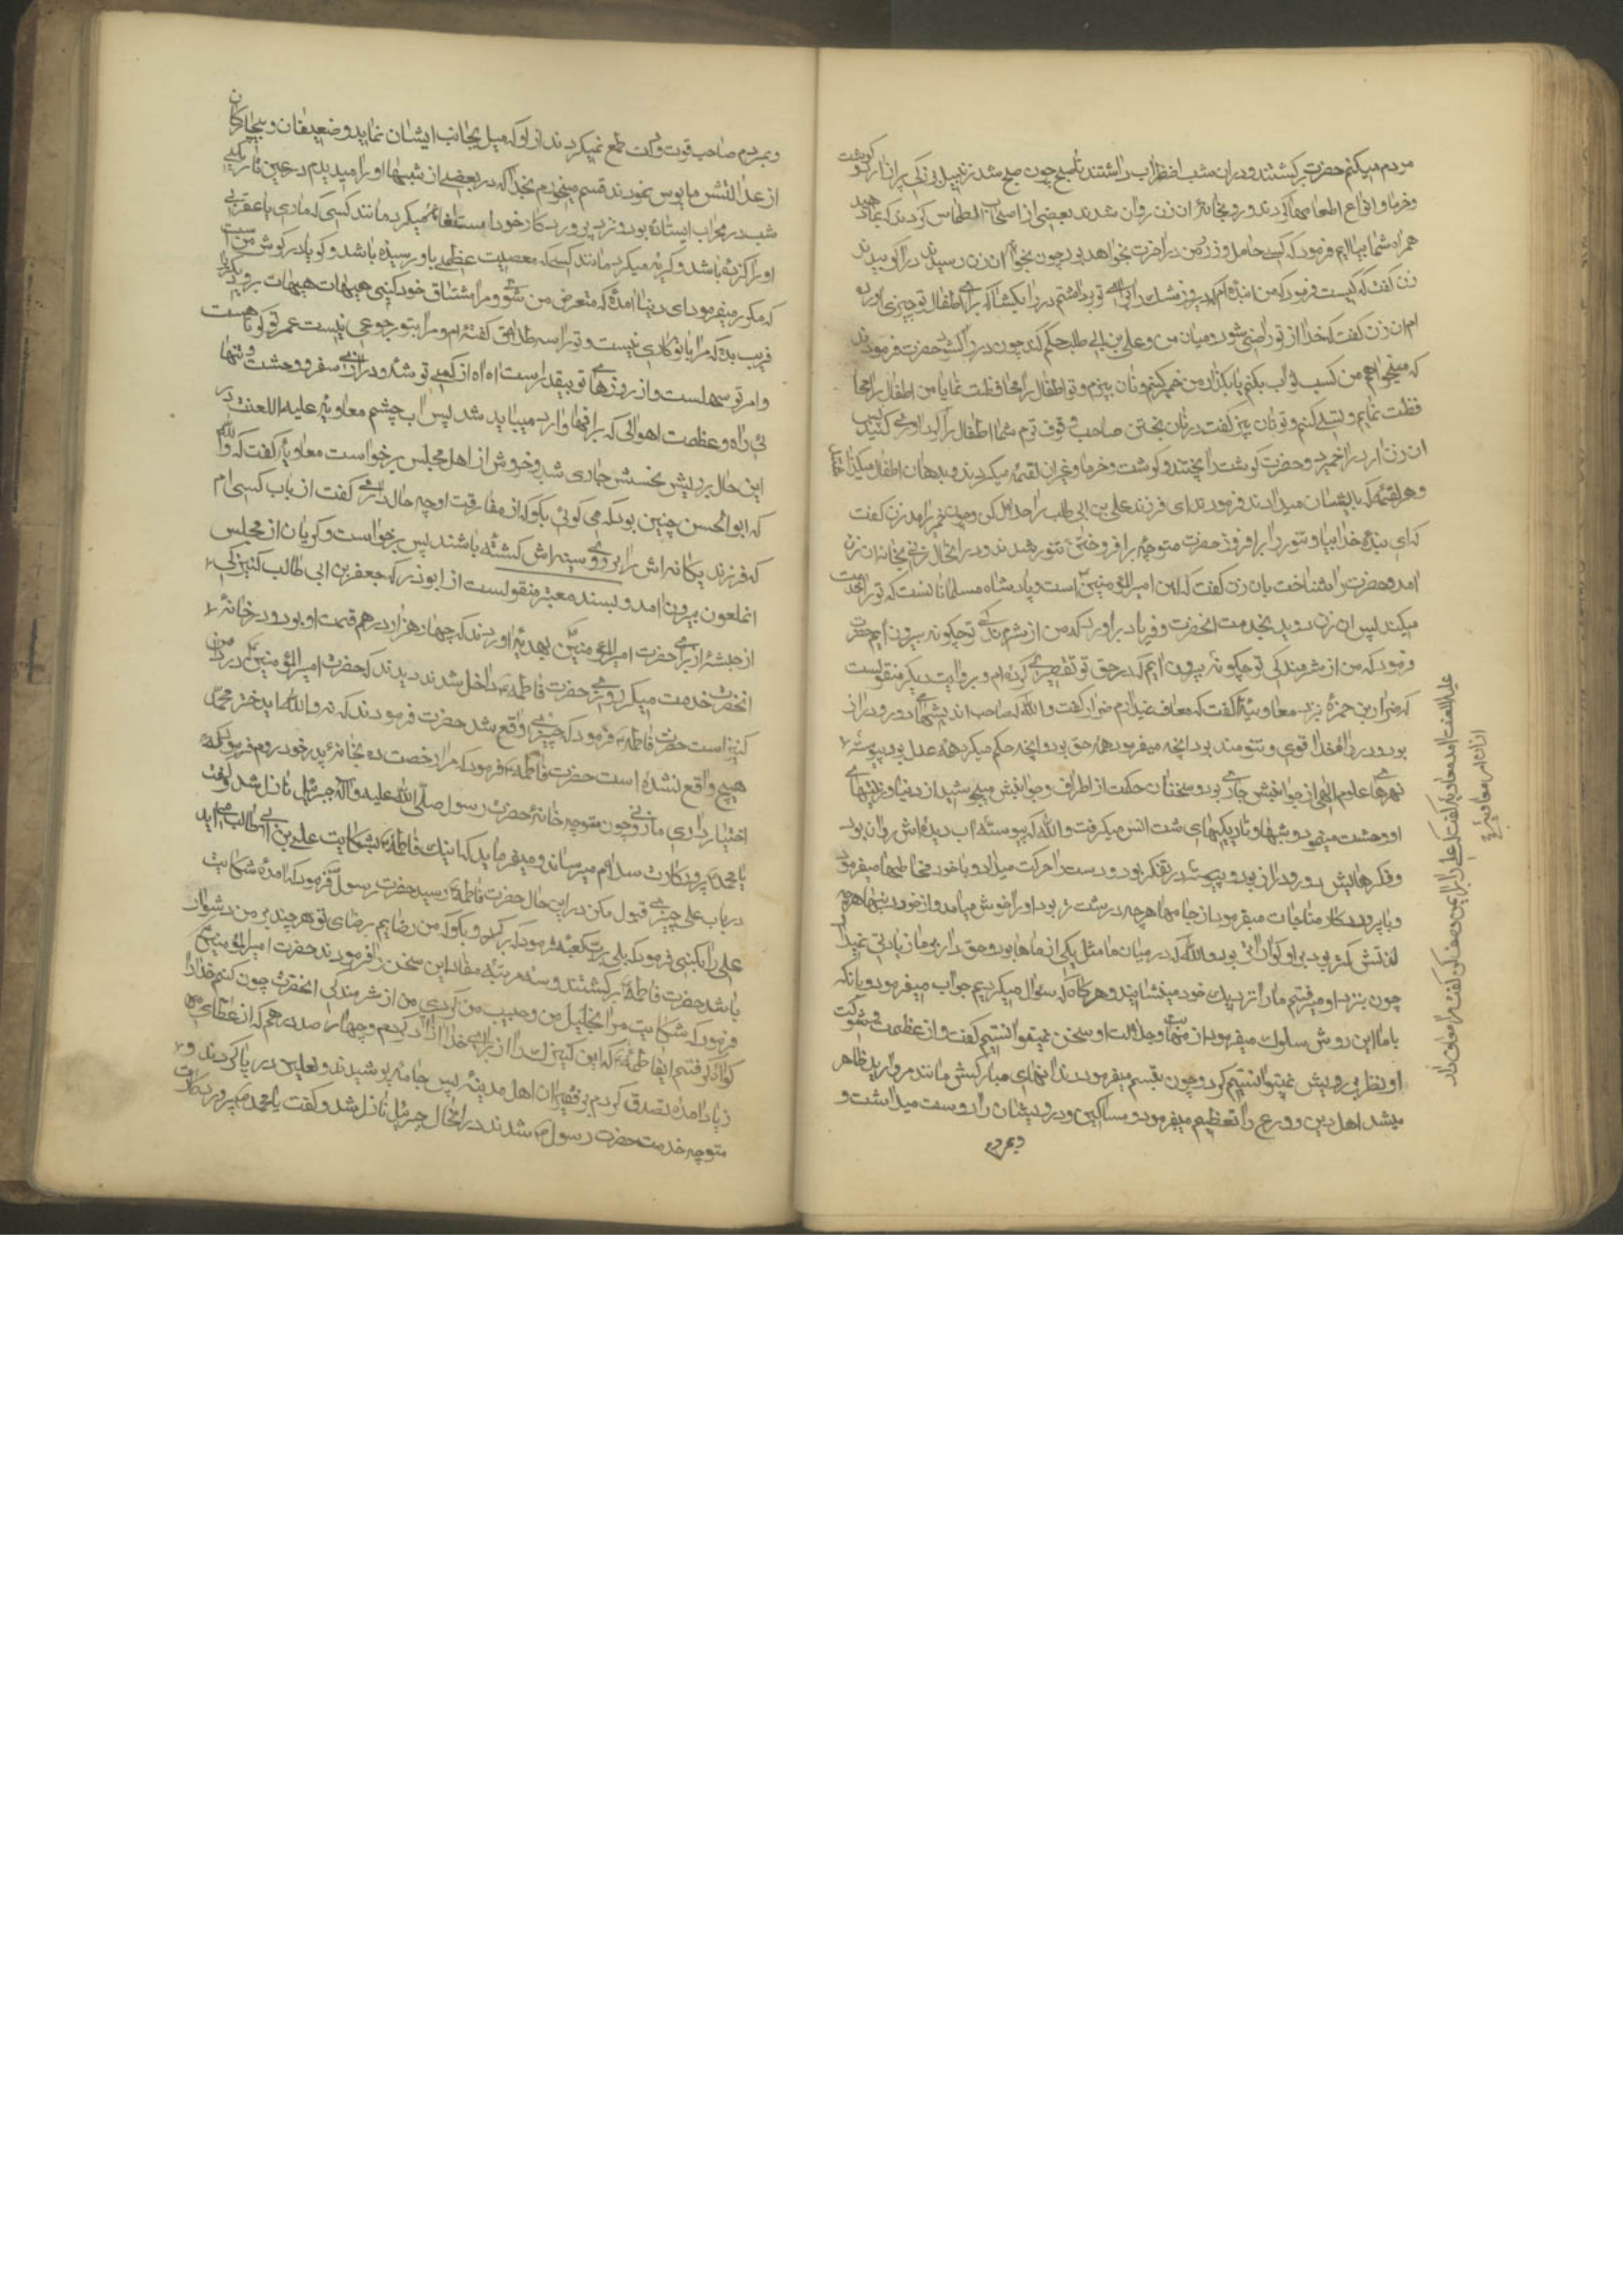 مردم میکنم حضرت برکشتند و دران شب اضطراب داشتند تا صبح چون صبح شد زنبیل بزرکی پر از ارد و کوشت
و خرما و انواع اطعامها کردند و رو بخانهٔ ان زن روان شدند بعضی از اصحاب التماس کردند که بما دهید
همراه شما بیاییم فرمود که کسی حامل وزر من در اخرت نخواهد بود چون بخانهٔ ان زن رسیدند در را کوبیدند
زن کفت که کیست فرمود که من انبندهام که دیروز مشک را برای تو برداشتم در را بکشا که برای اطفال تو چیزی اورده
ام ان زن کفت که خدا از تو راضی شود و میان من و علی بن ابی طالب حکم کند چون در را کشود حضرت فرمودند
که میخواهم من کسب ثواب بکنم یا بکذار من خمیر کنم و نان بپزم و تو اطفال را محافظت نما یا من اطفال را محا
فظت نمایم و تسلی کنم و تو نان بپز کفت در نان پختن صاحب وقوف ترم شما اطفال را نکهداری کنید پس
ان زن ارد را خمیر کرد و حضرت کوشت را پختند و کوشت و خرما و غیر ان لقمه میکردند و بدهان اطفال میکذاشتند
و هر لقمهٔ که بایشان میدادند فرمودند ای فرزند علی بن ابی طالب را حلال کن و چون خمیر برامد زن کفت
که ای بندهٔ خدا بیا و تنور را برافروز حضرت متوجه برافروختن تنور شدند در انحال زنی بخانهٔ ان زن
امد و حضرت را شناخت بان زن کفت که این امیر المؤمنین است و پادشاه مسلمانانست که تو را خدمت
میکند پس ان زن دوید بخدمت انحضرت و فریاد براورد که من از شرمندکی تو چکونه بیرون ایم حضرت
فرمود که من از شرمندکی تو چکونه بیرون ایم که در حق تو تقصیر کردهام و بروایت دیکر منقولست
که ضرار بن حمزه نزد معاویه کفت که معاف میدارم ضرار کفت والله که صاحب اندیشهای دور و دراز
بود و در راه خدا قوی و تنومند بود انچه میفرمود همه حق بود و انچه حکم میکرد همه عدل بود پیوسته
نهرهای علوم الهی از جوانبش جاری بود و سخنان حکمت از اطراف و جوانبش میجوشید از دنیا و زینتهای
او وحشت مینمود و بشبها و تاریکیهای شب انس میکرفت والله که پیوسته اب دیدهاش روان بود
و فکرهایش دور و دراز بود و پیوسته در تفکر بود و دست را حرکت میداد و با خود مخاطبها میفرمود
و با پروردکار مناجات میفرمود از جامها هرچه درشت تر بود او را خوش میامد و از خوردنیها هرچه
لذتش کمتر بود بر او کوارا تر بود والله که در میان ما مثل یکی از ماها بود و حق دارتر و ما زیادتی نمیداد
چون بنزد او میرفتیم ما را نزدیک خود مینشانید و هرکاه که سؤال میکردیم جواب میفرمود و بانکه
با ما این روش سلوک میفرمود از مهابت و جلالت او سخن نمیتوانستیم کفت و از عظمت و شوکت
او نظر بر رویش نمیتوانستیم کرد و چون تبسم میفرمودند دندانهای مبارکش مانند مروارید ظاهر
میشد اهل دین و ورع را تعظیم میفرمود و مساکین و درویشان را دوست میداشت و
و بمردم
علیه اللعنت امد معاویه کفت که علی را برای من وصف کن کفت مرا معاف دار
ازان امر معاویه
و بمردم صاحب قوت و مکنت طمع نمیکردند از او که میل بجانب ایشان نماید و ضعیفان و بیچارکان
از عدالتش مایوس نبودند قسم میخورم بخدا که در بعضی از شبها او را میدیدم در عین تاریکی
شب در محراب ایستاده بود و نزد پروردکار خود استغاثه میکرد مانند کسی که ماری یا عقربی
او را کزیده باشد و کریه میکرد مانند کسی که معصیت عظمی باو رسیده باشد و کویا در کوش من است
که مکرر میفرمود ای دنیا امدهٔ که متعرض من شوی و مرا مشتاق خود کنی هیهات هیهات برو دیکری را
فریب بده که مرا با تو کاری نیست و تو را سه طلاق کفتهام و مرا بتو رجوعی نیست عمر تو کوتاهست
و امر تو سهلست و ارزوهای تو بیقدر است اه اه از کمی توشه و درازی سفر و وحشت و تنهایی
ئی راه و عظمت اهوالی که بر انها وارد میباید شد پس اب چشم معاویه علیه اللعنت در
این حال بر ریش نحسش جاری شد و خروش از اهل مجلس برخواست معاویه کفت که والله
که ابو الحسن چنین بود که می کوئی بکو که از مفارقت او چه حال داری کفت از باب کسی ام
که فرزند یکانهاش را بر روی سینهاش کشته باشند پس برخواست و کریان از مجلس
انملعون بیرون امد و بسند معتبر منقولست از ابوذر که جعفر بن ابی طالب کنیزکی
از حبشه از برای حضرت امیر المؤمنین بهدیه اورد که چهار هزار درهم قیمت او بود و در خانهٔ
انحضرت خدمت میکرد روزی حضرت فاطمه داخل شدند دیدند که حضرت امیر المؤمنین در دامن
کنیز است حضرت فاطمه فرمود که چیزی واقع شد حضرت فرمودند که نه والله اید ختر محمد
هیچ واقع نشده است حضرت فاطمه فرمود که مرا رخصت ده بخانهٔ پدر خود روم فرمود که
اختیار داری مانعی و چون متوجه خانهٔ حضرت رسول صلی الله علیه و اله جبرئیل نازل شد و کفت
یا محمد پروردکارت سلام میرساند و میفرماید که اینک فاطمه بشکایت علی بن ابی طالب میاید
در باب علی چیزی قبول مکن در این حال حضرت فاطمه رسید حضرت رسول فرمود که امدهٔ شکایت
علی را بکنی فرمود که بلی برب کعبه فرمود که برکرد و بکو که من راضیم برضای تو هر چند بر من دشوار
باشد حضرت فاطمه برکشتند و سه مرتبه مفاد این سخن را فرمودند حضرت امیر المؤمنین
فرمود که شکایت مرا بخلیل من و حبیب من کردی من از شرمندکی انحضرت چون کنم خدا را
کواه کرفتم ایفاطمه که این کنیزک را از برای خدا ازاد کردم و چهار صد درهم که از عطای من
زیاد امده تصدق کردم بر فقیران اهل مدینه پس جامه پوشیدند و نعلین در پا کردند و
متوجه خدمت حضرت رسول شدند در انحال جبرئیل نازل شد و کفت یا محمد پروردکارت